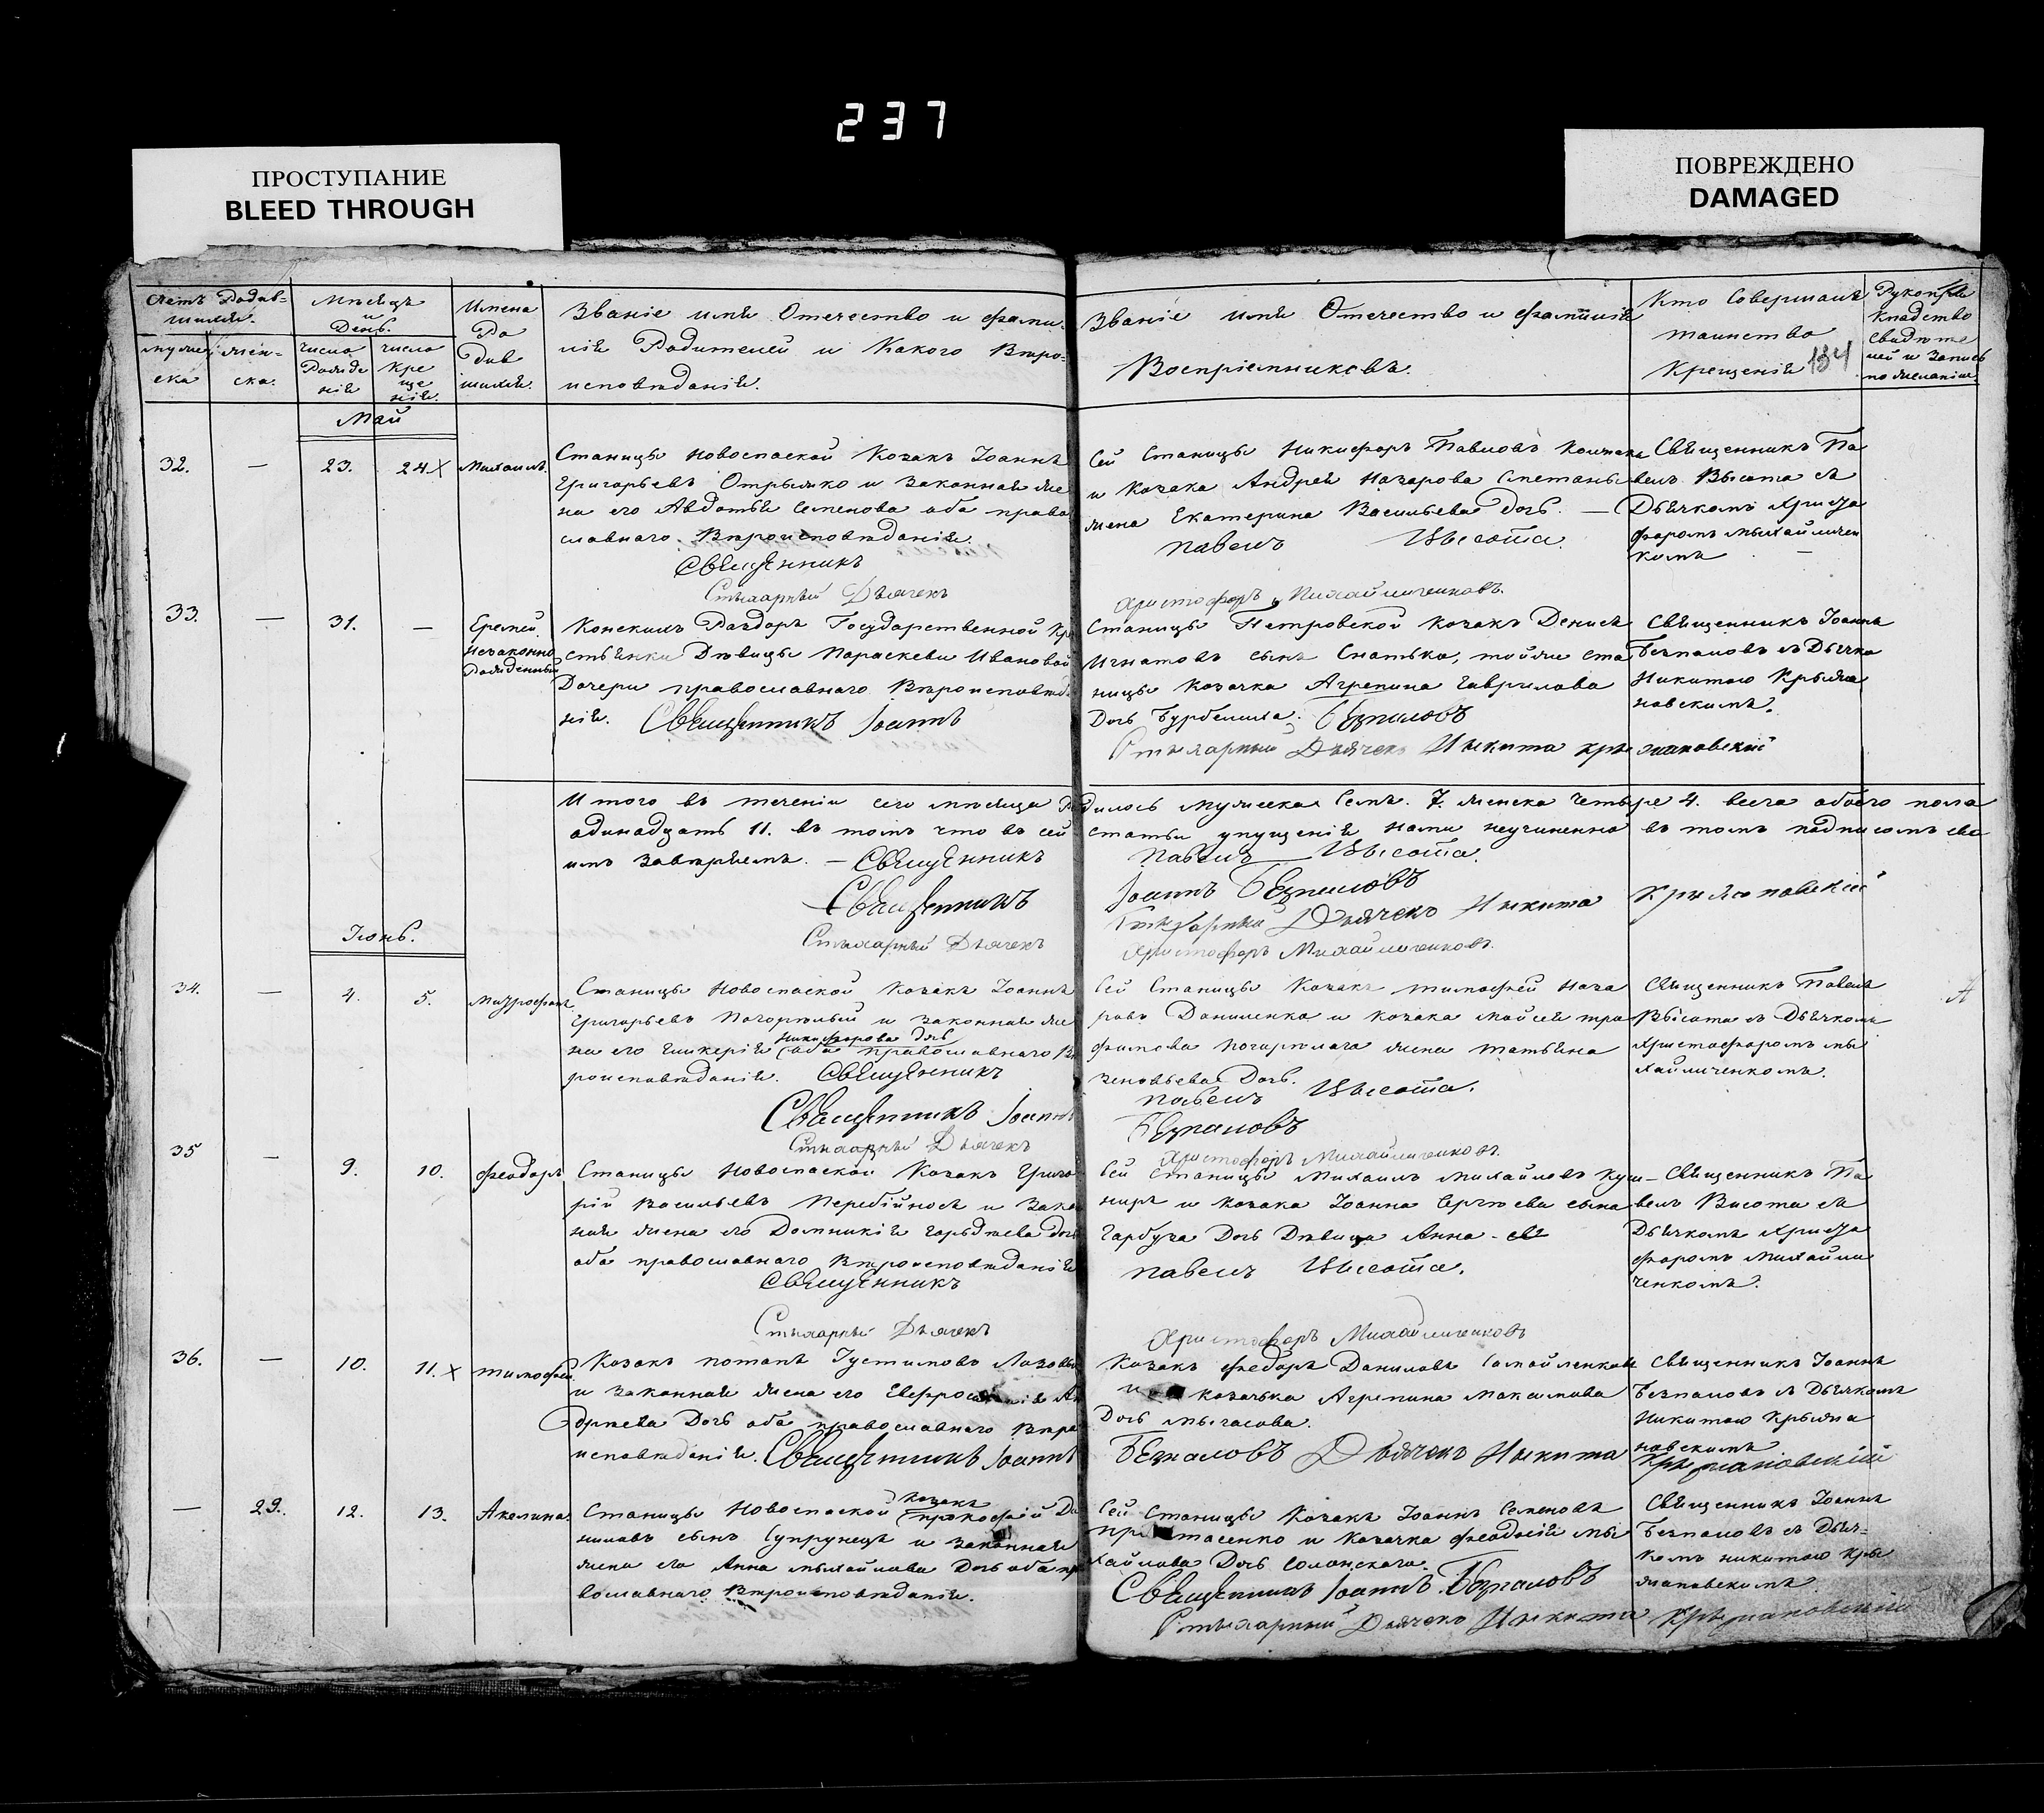 237
ПРОСТУПАНИЕ
BLEED THROUGH
ПОВРЕЖДЕНО
DAMAGED
Счетъ Родив-
шихся.
Мѣсяцъ
и
День.
Имена
Ро
див
шихся.
муже
ска
жен-
ска.
число
Рожде
нія
число
Кре
ще
нія.
Званіе имя Отечество и фами-
лія Родителей и Какого Вѣро-
исповѣданія.
Званіе имя Отечество и фамилія
Воспріемниковъ.
Кто Совершалъ
таинство
Крещенія
134
Рукопри
кладство
свидѣте
лей и Запись
по желанію.
Май
32.
—
23.
24. X
Михаилъ.
Станицы Новоспаской Козакъ Іоаннъ
Григорьевъ Отрышко и Законная же
на его Авдотья Семенова оба право
славнаго Вѣроисповѣданія.
Священникъ
Стихарный Дьячекъ
Сей Станицы Никифоръ Павловъ
и Козака Андрея Назарова
жена Екатерина Васильева Дочь. —
Павелъ Высота.
Христофоръ Михайличенковъ.
Священникъ Па
велъ Высота съ
Дьячкомъ Христо
форомъ Михайличен
комъ —
33.
—
31.
—
Еремей
Незаконно
Рожденный
Конскихъ Раздоръ Государственной Кр
стьянки Дѣвицы Параскевы Ивановой
Дочери православнаго Вѣроисповѣда
нія. Священникъ Іоаннъ
Станицы Петровской Козакъ Денисъ
Игнатовъ сынъ Снатько, тойже ста
ницы Козачка Агрепина Гаврилова
Дочь Безпаловъ
Стихарный Дьячекъ Никита Крыжановскій
Священникъ Іоаннъ
Безпаловъ съ Дьячко
Никитою Крыжа
новскимъ.
Итого въ теченіи сего мѣсяца Родилось мужеска Семь. 7. женска четыре 4. всего обоего пола
адинадцать 11. въ томъ что въ сей статьи упущенія нами неучиненно въ томъ подписомъ сво
имъ Завѣряемъ. — Священникъ Павелъ Высота.
Священникъ Іоаннъ Безпаловъ
Стихарный Дьячекъ Никита Крыжановскій
Стихарный Дьячекъ Христофоръ Михайличенковъ.
Іюнь.
34.
—
4.
5.
Митрофанъ
Станицы Новоспаской Козакъ Іоаннъ
Григорьевъ Погорѣлый и Законная же
Никифорова дочь
на его Гликерія оба православнаго Вѣ
роисповѣданія. Священникъ
Священникъ Іоаннъ
Стихарный Дьячекъ
Сей Станицы Козакъ Тимофей Наза
ровъ Даниленко и Козака Мойсея Тро
фимова Погорѣлаго жена Татьяна
Зеновьева Дочь.
Павелъ Высота.
Безпаловъ
Христофоръ Михайличенковъ.
Священникъ Павелъ
Высота съ Дьячкомъ
Христофоромъ Ми
хайличенкомъ.
35
—
9.
10.
Феодоръ
Станицы Новоспаской Козакъ Григо
рій Васильевъ Перебійносъ и Закон
ная жена его Домникія дочь
оба православнаго Вѣроисповѣданія
Священникъ
Стихарный Дьячекъ
Сей Станицы Михаилъ Михайловъ Куш-
ниръ и Козака Іоанна Сергѣева сына
Гарбуза Дочь Дѣвица Анна
Павелъ Высота.
Христофоръ Михайличенковъ
Священникъ Па
велъ Висота съ
Дьячкомъ Христо
форомъ Михайли
ченкомъ.
36.
—
10.
11. X
Тимофей.
Козакъ Потапъ Густиновъ Лозовый
и Законная жена его Евфросинія Ан
дрѣева Дочь оба православнаго Вѣро
исповѣданія. Священникъ Іоаннъ
Козакъ Федоръ Даниловъ Самойленковъ
и Козачка Агрепина Максимова
Дочь
Безпаловъ Дьячекъ Никита Крыжановскій
Священникъ Іоаннъ
Безпаловъ съ Дьячкомъ
Никитою Крыжа
новскимъ
—
29.
12.
13.
Акелина.
Козакъ
Станицы Новоспаской Прокофій Да
ниловъ сынъ Супрунецъ и Законная
жена его Анна Михайлова Дочь оба пра
вославнаго Вѣроисповѣданія.
Сей Станицы Козакъ Іоаннъ Семеновъ
и Козачка Феодосія Ми
хайлова Дочь Солонскаго.
Священникъ Іоаннъ Безпаловъ
Стихарный Дьячекъ Никита Крыжановскій
Священникъ Іоаннъ
Безпаловъ съ Дьяч-
комъ Никитою Кры
жановскимъ